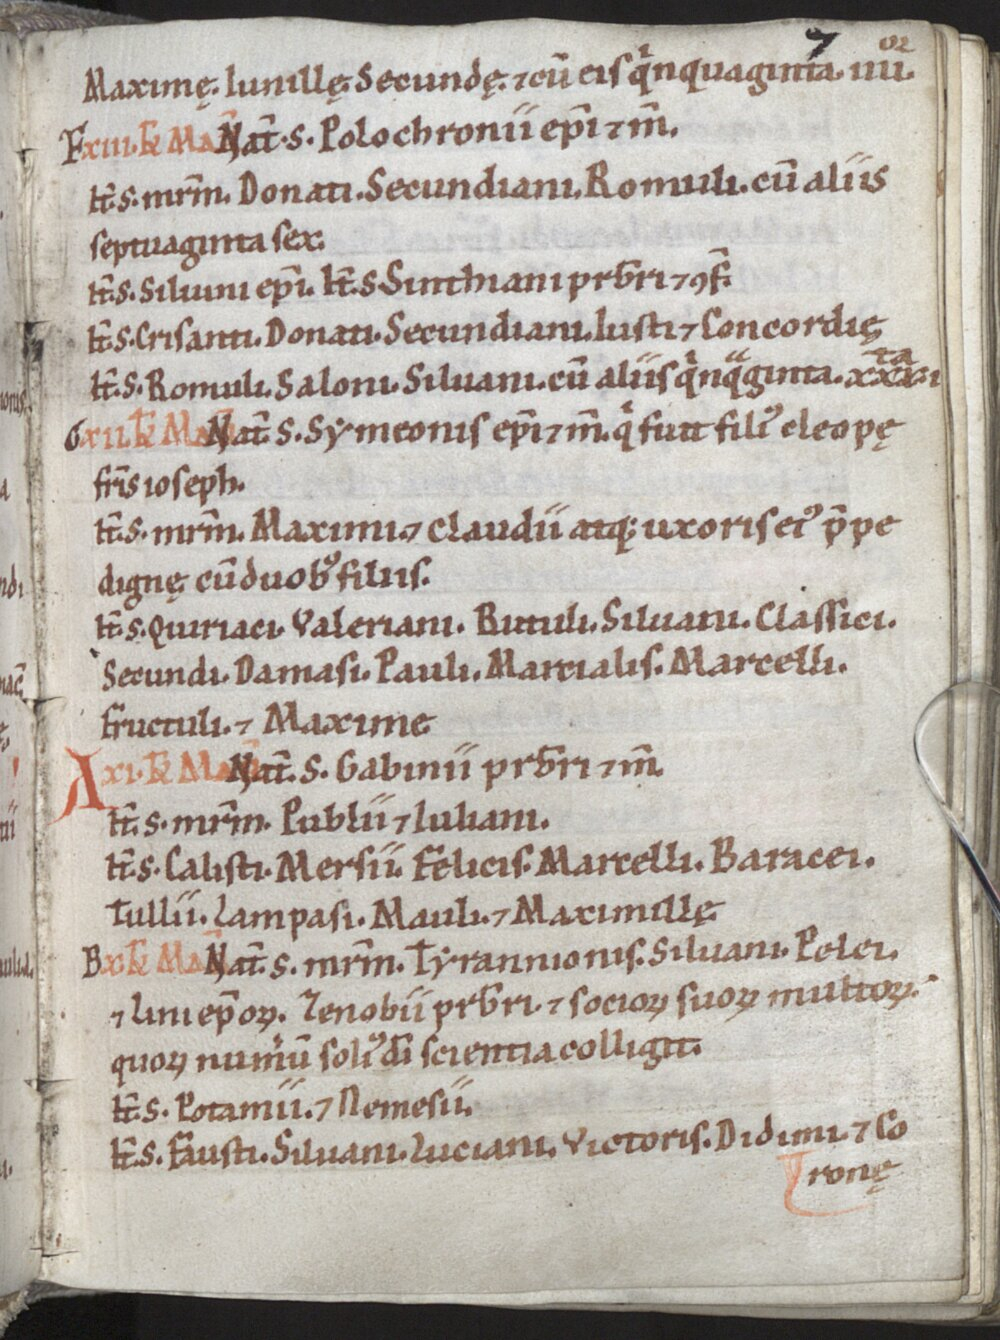 7
Maximę. Iunillę. Secundę. ⁊ cū eis qͥnquaginta. iııı.
F xiii. kł Mař Nat̄. s. Polochronii ep̄i ⁊ m̄.
It̄. s. mr̄m. Donati. Secundiani. Romuli. cū aliis
septuaginta sex.
It̄. s. Siluini ep̄i. It̄. s. Sinthiani pr̄bri ⁊ ꝯf̄.
It̄. s. Crisanti. Donati. Secundiani. Iusti ⁊ Concordię
It̄. s. Romuli. Saloni. Siluani. cū aliis qͥnqᷓginta.
G xii. kł Mař Nat̄. s. Symeonis ep̄i ⁊ m̄. qͥ fuit filiꝰ cleopę
fr̄is ioseph.
It̄. s. mr̄m. Maximi. ⁊ Claudii atq; uxoris eiꝰ p̄pe
dignę cū duobꝰ filiis.
It̄. s. Quiriaci. Valeriani. Butuli. Siluani. Classici.
Secundi. Damasi. Pauli. Martialis. Marcelli.
Fructuli. ⁊ Maxime
A xi. kł Mař Nat̄. s. Gabinii pr̄bri ⁊ m̄.
It̄. s. mr̄m. Publii ⁊ Iuliani.
It̄. s. Calisti. Mersii. Felicis. Marcelli. Baracei.
Tullii. Lampasi. Mauli. ⁊ Maximillę
B x. kł Mař Nat̄. s. mr̄m. Tyrannionis. Siluani. Pelei.
⁊ Lini ep̄oꝝ. Zenobii pr̄bri. ⁊ socioꝝ suoꝝ multoꝝ.
quoꝝ num̄ū soliꝰ dī scientia colligit.
It̄. s. Potamii. ⁊ Nemesii.
It̄. s. Fausti. Siluani. Luciani. Victoris. Didimi. ⁊ Co
ronę